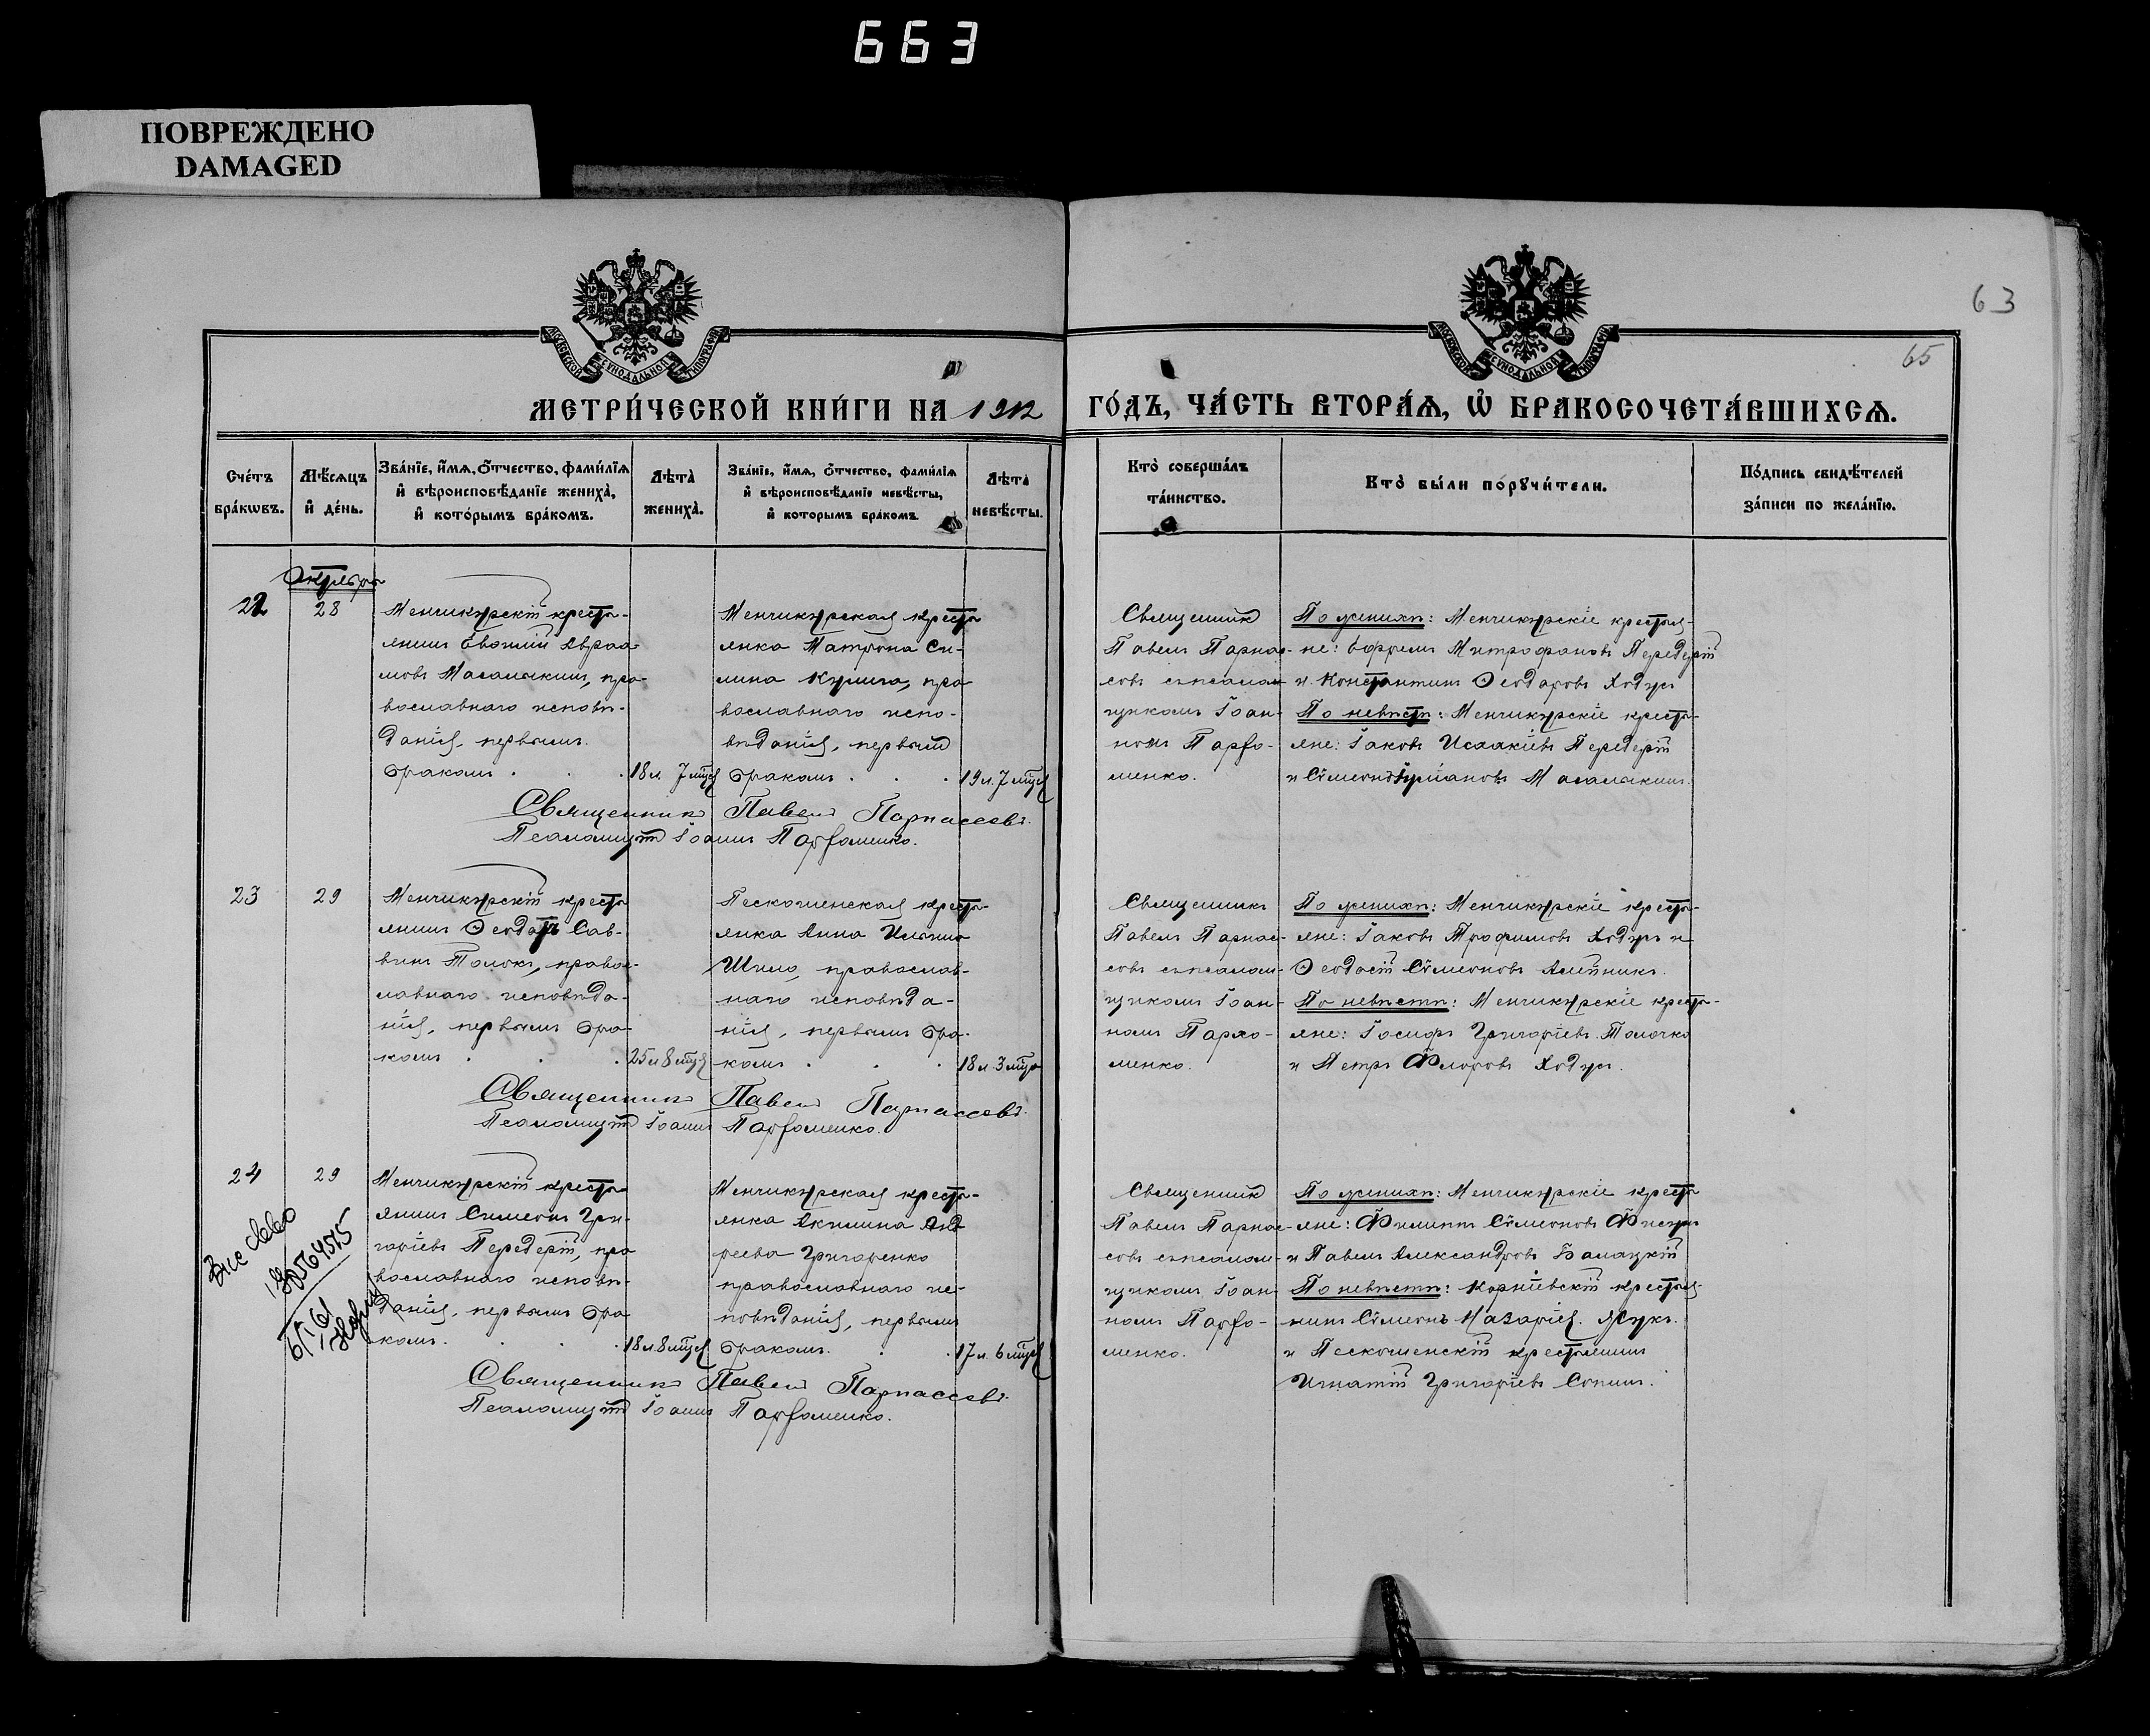 663
ПОВРЕЖДЕНО
DAMAGED
63
65
МОСКОВСКОЙ СѴНОДАЛЬНОЙ ТИПОГРАФІИ
МОСКОВСКОЙ СѴНОДАЛЬНОЙ ТИПОГРАФІИ
МЕТРИ́ЧЕСКОЙ КНИ́ГИ НА 1912 ГО́ДЪ, ЧА́СТЬ ВТОРА́Я, Ѡ БРАКОСОЧЕТА́ВШИХСЯ.
Сче́тъ бра́кѡвъ.
Мѣ́сяцъ и҆ де́нь.
Зва́нїе, и҆́мя, ѻ҆́тчество, фами́лїя и҆ вѣроисповѣ́данїе жениха̀, и҆ кото́рымъ бра́комъ.
Лѣта̀ жениха̀.
Зва́нїе, и҆́мя, ѻ҆́тчество, фами́лїя и҆ вѣроисповѣ́данїе невѣ́сты, и҆ которымъ бра́комъ
Лѣта̀ невѣ́сты.
Кто̀ соверша́лъ та́инство.
Кто̀ бы́ли порꙋчи́тели.
По́дпись свидѣ́телей за́писи по жела́нїю.
Октябрь
22
28
Менчикурскій кресть-
янинъ Евѳимій Авраа-
мовъ Маламыкинъ, пра-
вославнаго исповѣ-
данія, первымъ
бракомъ . . .
18 л. 7 мѣс
Менчикурская кресть
янка Матрона Си-
лина Кулиш, пра
вославнаго испо-
вѣданія, первымъ
бракомъ . . .
19 л. 7 мѣс
Священникъ
Павелъ Парнас-
совъ съ псалом-
щикомъ Іоан-
номъ Парѳо-
менко.
По женихѣ: Менчикурскіе крестья-
не: Ефремъ Митрофановъ Передерій
и Константинъ Ѳеодоровъ Ходус
По невѣстѣ: Менчикурскіе кресть-
яне: Іаковъ Исаакіевъ Передерій
и Сѵмеонъ Маламыкинъ.
Священникъ Павелъ Парнассовъ.
Псаломщикъ Іоаннъ Парѳоменко.
23
29
Менчикурскій кресть
янинъ Ѳеодоръ Сав-
винъ Толок, правос-
лавнаго исповѣда-
нія, первымъ бра-
комъ . . .
25 л 8 мѣс
Пескошенская кресть-
янка Анна Ильина
Шило, православ-
наго исповѣда-
нія, первымъ бра-
комъ . . .
18 л. 3 мѣс
Священникъ
Павелъ Парнас-
совъ съ псалом-
щикомъ Іоан-
номъ Пархо-
менко.
По женихѣ: Менчикурскіе кресть-
яне: Іаковъ Трофимовъ Ходус и
Ѳеодосій Сѵмеоновъ Алейникъ.
По невѣстѣ: Менчикурскіе кресть-
яне: Іосифъ Григоріевъ Толочко
и Петръ Флоровъ Ходус.
Священникъ Павелъ Парнассовъ.
Псаломщикъ Іоаннъ Парѳоменко.
24
29
Менчикурскій кресть
янинъ Симеонъ Гри-
горіевъ Передерій, пра
вославнаго исповѣ-
данія, первымъ бра
комъ. . .
18 л. 8 мѣс
Менчикурская кресть-
янка Акилина Анд
реева Григоренко
православнаго ис-
повѣданія, первымъ
бракомъ. . .
17 л. 6 мѣс
Священникъ
Павелъ Парнас-
совъ съ псалом-
щикомъ Іоан-
номъ Парѳо-
менко.
По женихѣ: Менчикурскіе кресть
яне: Филиппъ Сѵмеоновъ
и Павелъ Александровъ Балацкій
По невѣстѣ: Корніевскій крестья-
нинъ Сѵмеонъ Назаріев. Жукъ.
и Пескошенскій крестьянинъ
Игнатій Григоріевъ Сопинъ.
Священникъ Павелъ Парнассовъ.
Псаломщикъ Іоаннъ Парѳоменко.